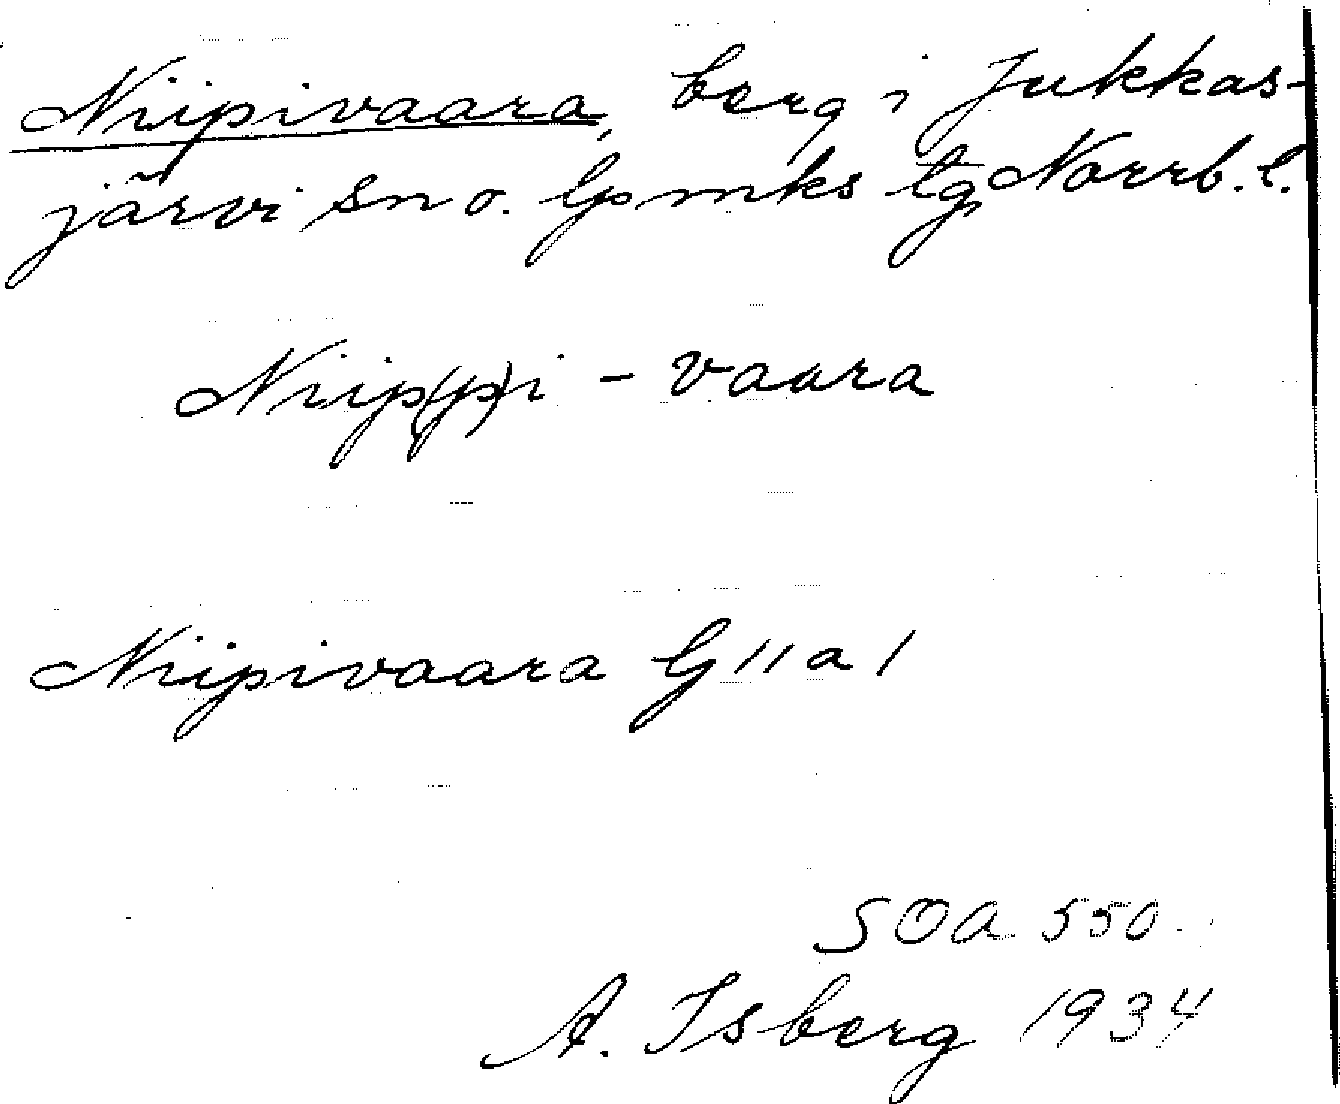 Niipivaara, berg i Jukkas-
järvi sn o. lpmks tg, Norrb. l.
Niip(p)i - vaara
Niipivaara G 11 a 1
SOA 550.
A. Isberg 1934